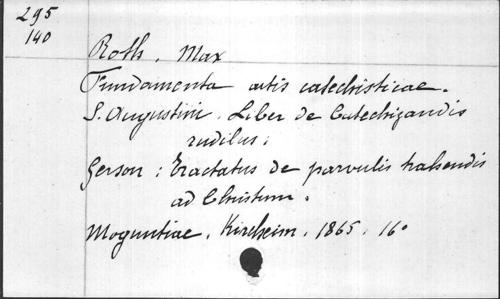 295
140
Roth, Max
Fundamenta artis catechisticae.
S. Augustini. Liber de Catechizandis
rudibus;
Gerson: Tractatus de parvulis trahendis
ad Christum.
Moguntiae, Kirchheim, 1865, 16°